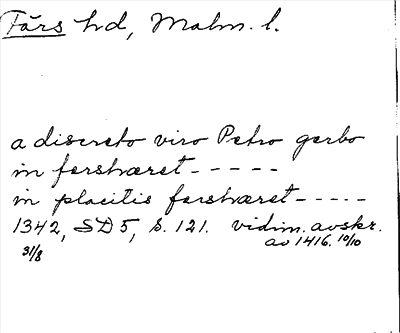 Färs hd, Malm. l.
a discreto viro Petro gerbo
in fershæret - - - - -
in placitis fershæret - - - - -
1342, SD 5, s. 121. vidim. avskr.
31/8 av 1416. 10/10